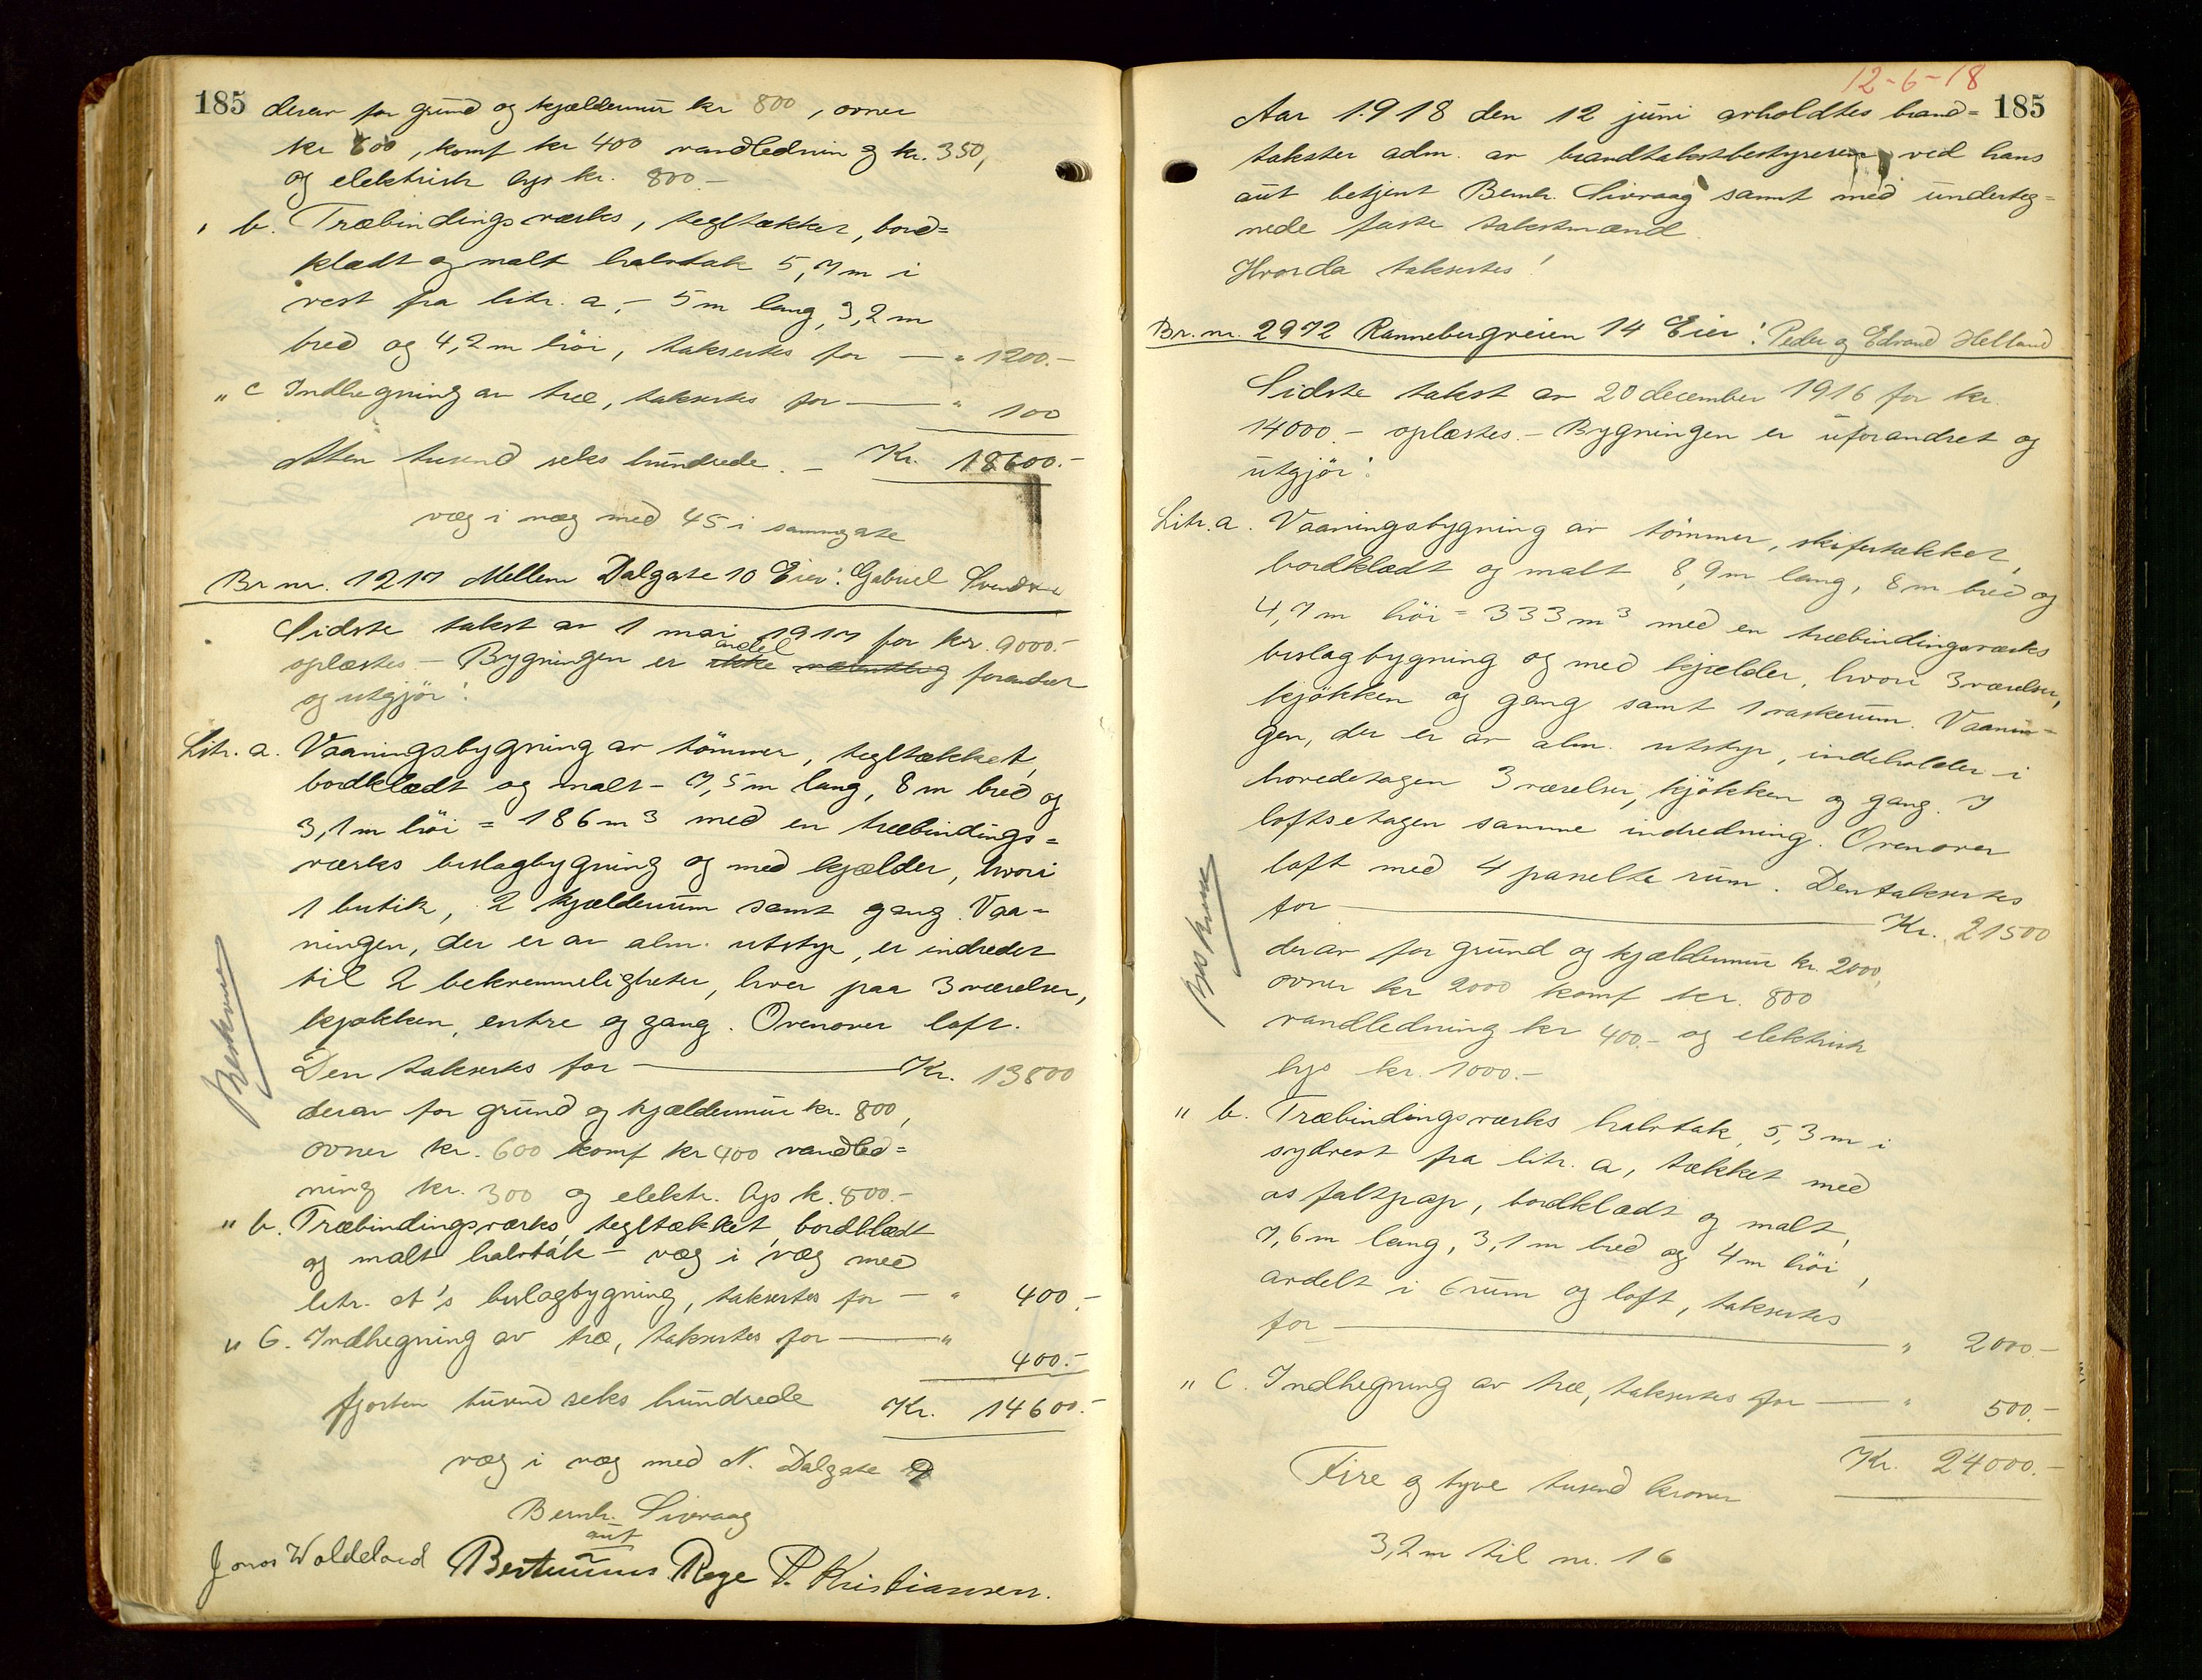 185 derav for grund og kjældermur kr 800, ovner
kr 800, komf kr 400 vandledning kr. 350,
og elektrisk lys kr. 800.-
" b. Træbindingsværks, tegltækket, bord=
klædt og malt halvtak 5,7 m i
vest fra litr. a, - 5 m lang, 3,2 m
bred og 4,2 m höi, taksertes for — " 1200.-
" c Indhegning av træ, taksertes for — " 100
Atten tusend seks hundrede. - Kr. 18600.-
væg i væg med 45 i sammegate
Br nr. 1217 Mellem Dalgate 10 Eier: Gabriel Svendsen
Sidste takst av 1 mai 1917 for kr. 9000.-
andel
oplæstes. - Bygningen er ikke væsentlig forandret
og utgjör:
Litr. a. Vaaningsbygning av tömmer, tegltækket,
bordklædt og malt - 7,5 m lang, 8 m bred og
3,1 m höi = 186 m3 med en træbindings=
værks bislagbygning og med kjælder, hvori
1 butik, 2 kjælderrum samt gang. Vaa=
ningen, der er av alm. utstyr, er indredet
til 2 bekvemmeligheter, hver paa 3 værelser,
kjøkken, entre og gang. Ovenover loft.
Den taksertes for — Kr. 13800
derav for grund og kjældermur kr. 800,
ovner kr. 600 komf kr 400 vandled=
ning kr. 300 og elektr. lys k. 800.-
" b. Træbindingsværks, tegltækket, bordklædt
og malt halvtak - væg i væg med
litr. a's bislagbygning, taksertes for — " 400.-
" C. Indhegning av træ, taksertes for — "
400.-
fjorten tusend seks hundrede Kr. 14600.-
væg i væg med N. Dalgate 9
Bernh. Sivraag
aut
Jonas Woldeland Bertinius Rege P. Kristiansen.
Beskrive
12-6-18
Aar 1918 den 12 juni avholdtes brand= 185
takster adm. av brandtakstbestyreren ved hans
aut betjent Bernh. Sivraag samt med underteg=
nede faste takstmænd.
Hvorda taksertes!
Br. nr. 2972 Rannebergveien 14 Eier: Peder og Edvard Helland
Sidste takst av 20 december 1916 for kr.
14000.- oplæstes. - Bygningen er uforandret og
utgjör:
Litr. a. Vaaningsbygning av tömmer, skifertækket,
bordklædt og malt 8,9 m lang, 8 m bred og
4,7 m höi = 333 m3 med en træbindingsværks
bislagbygning og med kjælder, hvori 3 værelser,
kjökken og gang samt 1 vaskerum. Vaanin=
gen, der er av alm. utstyr, indeholder i
hovedetagen 3 værelser, kjökken og gang. I
loftsetagen samme indredning. Ovenover
loft med 4 panelte rum. Den taksertes
for — Kr. 21500
derav for grund og kjældermur kr. 2000,
ovner kr 2000 komf kr. 800
vandledning kr 400.- og elektrisk
lys kr. 1000.-
" b. Træbindingsværks halvtak, 5,3 m i
sydvest fra litr. a, tækket med
asfaltpap, bordklædt og malt,
7,6 m lang, 3,1 m bred og 4 m höi,
avdelt i 6 rum og loft, taksertes
for — " 2000.-
" C. Indhegning av træ, taksertes for — " 500.-
Kr. 24000.-
Fire og tyve tusend kroner
3,2 m til nr. 16
Beskrive